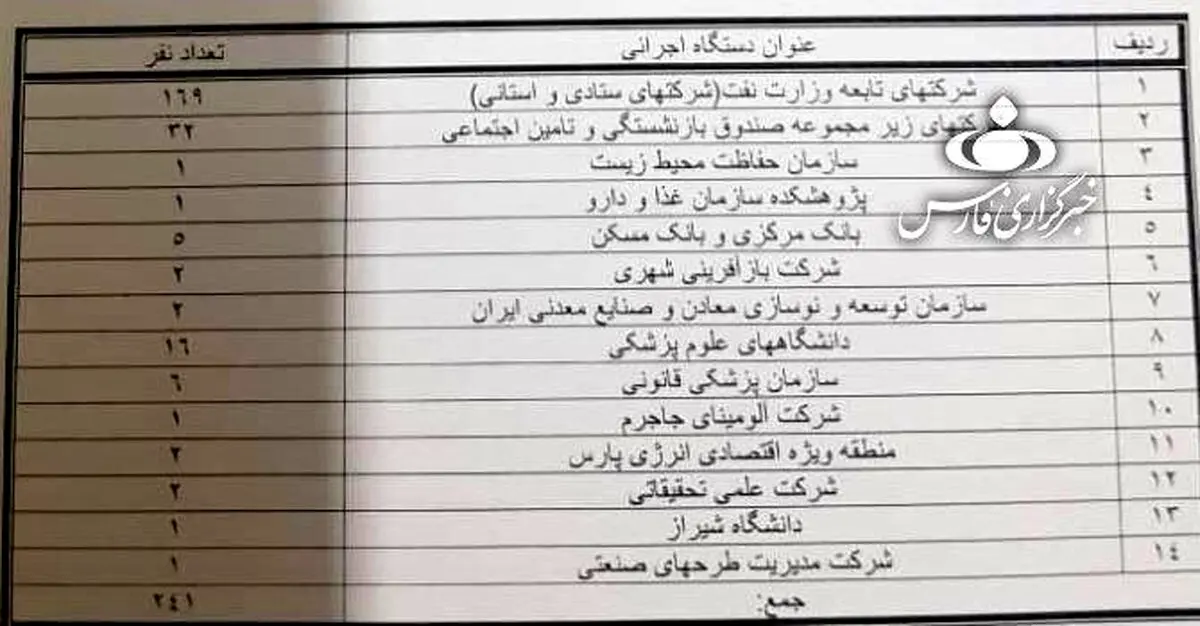 ردیف عنوان دستگاه اجرائی تعداد نفر
۱ شرکتهای تابعه وزارت نفت(شرکتهای ستادی و استانی) ۱۶۹
۲ کتهای زیر مجموعه صندوق بازنشستگی و تامین اجتماعی ۳۲
۳ سازمان حفاظت محیط زیست ۱
٤ پژوهشکده سازمان غذا و دارو ۱
۵ بانک مرکزی و بانک مسکن ۵
٦ شرکت بازآفرینی شهری ۲
۷ سازمان توسعه و نوسازی معادن و صنایع معدنی ایران ۲
۸ دانشگاههای علوم پزشکی ۱٦
۹ سازمان پزشکی قانونی ٦
۱۰ شرکت آلومینای جاجرم ۱
۱۱ منطقه ویژه اقتصادی انرژی پارس ۲
۱۲ شرکت علمی تحقیقاتی ۲
۱۳ دانشگاه شیراز ۱
۱٤ شرکت مدیریت طرحهای صنعتی ۱
جمع: ۲٤۱
خبرگزاری فارس